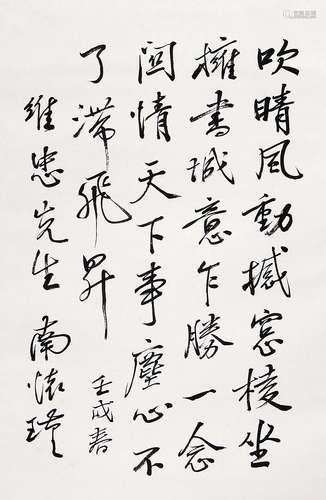 吹晴風動撼窗棱坐
擁書城意乍勝一念
関情天下事塵心不
了滯飛昇 壬戌春
維忠先生 南懷瑾